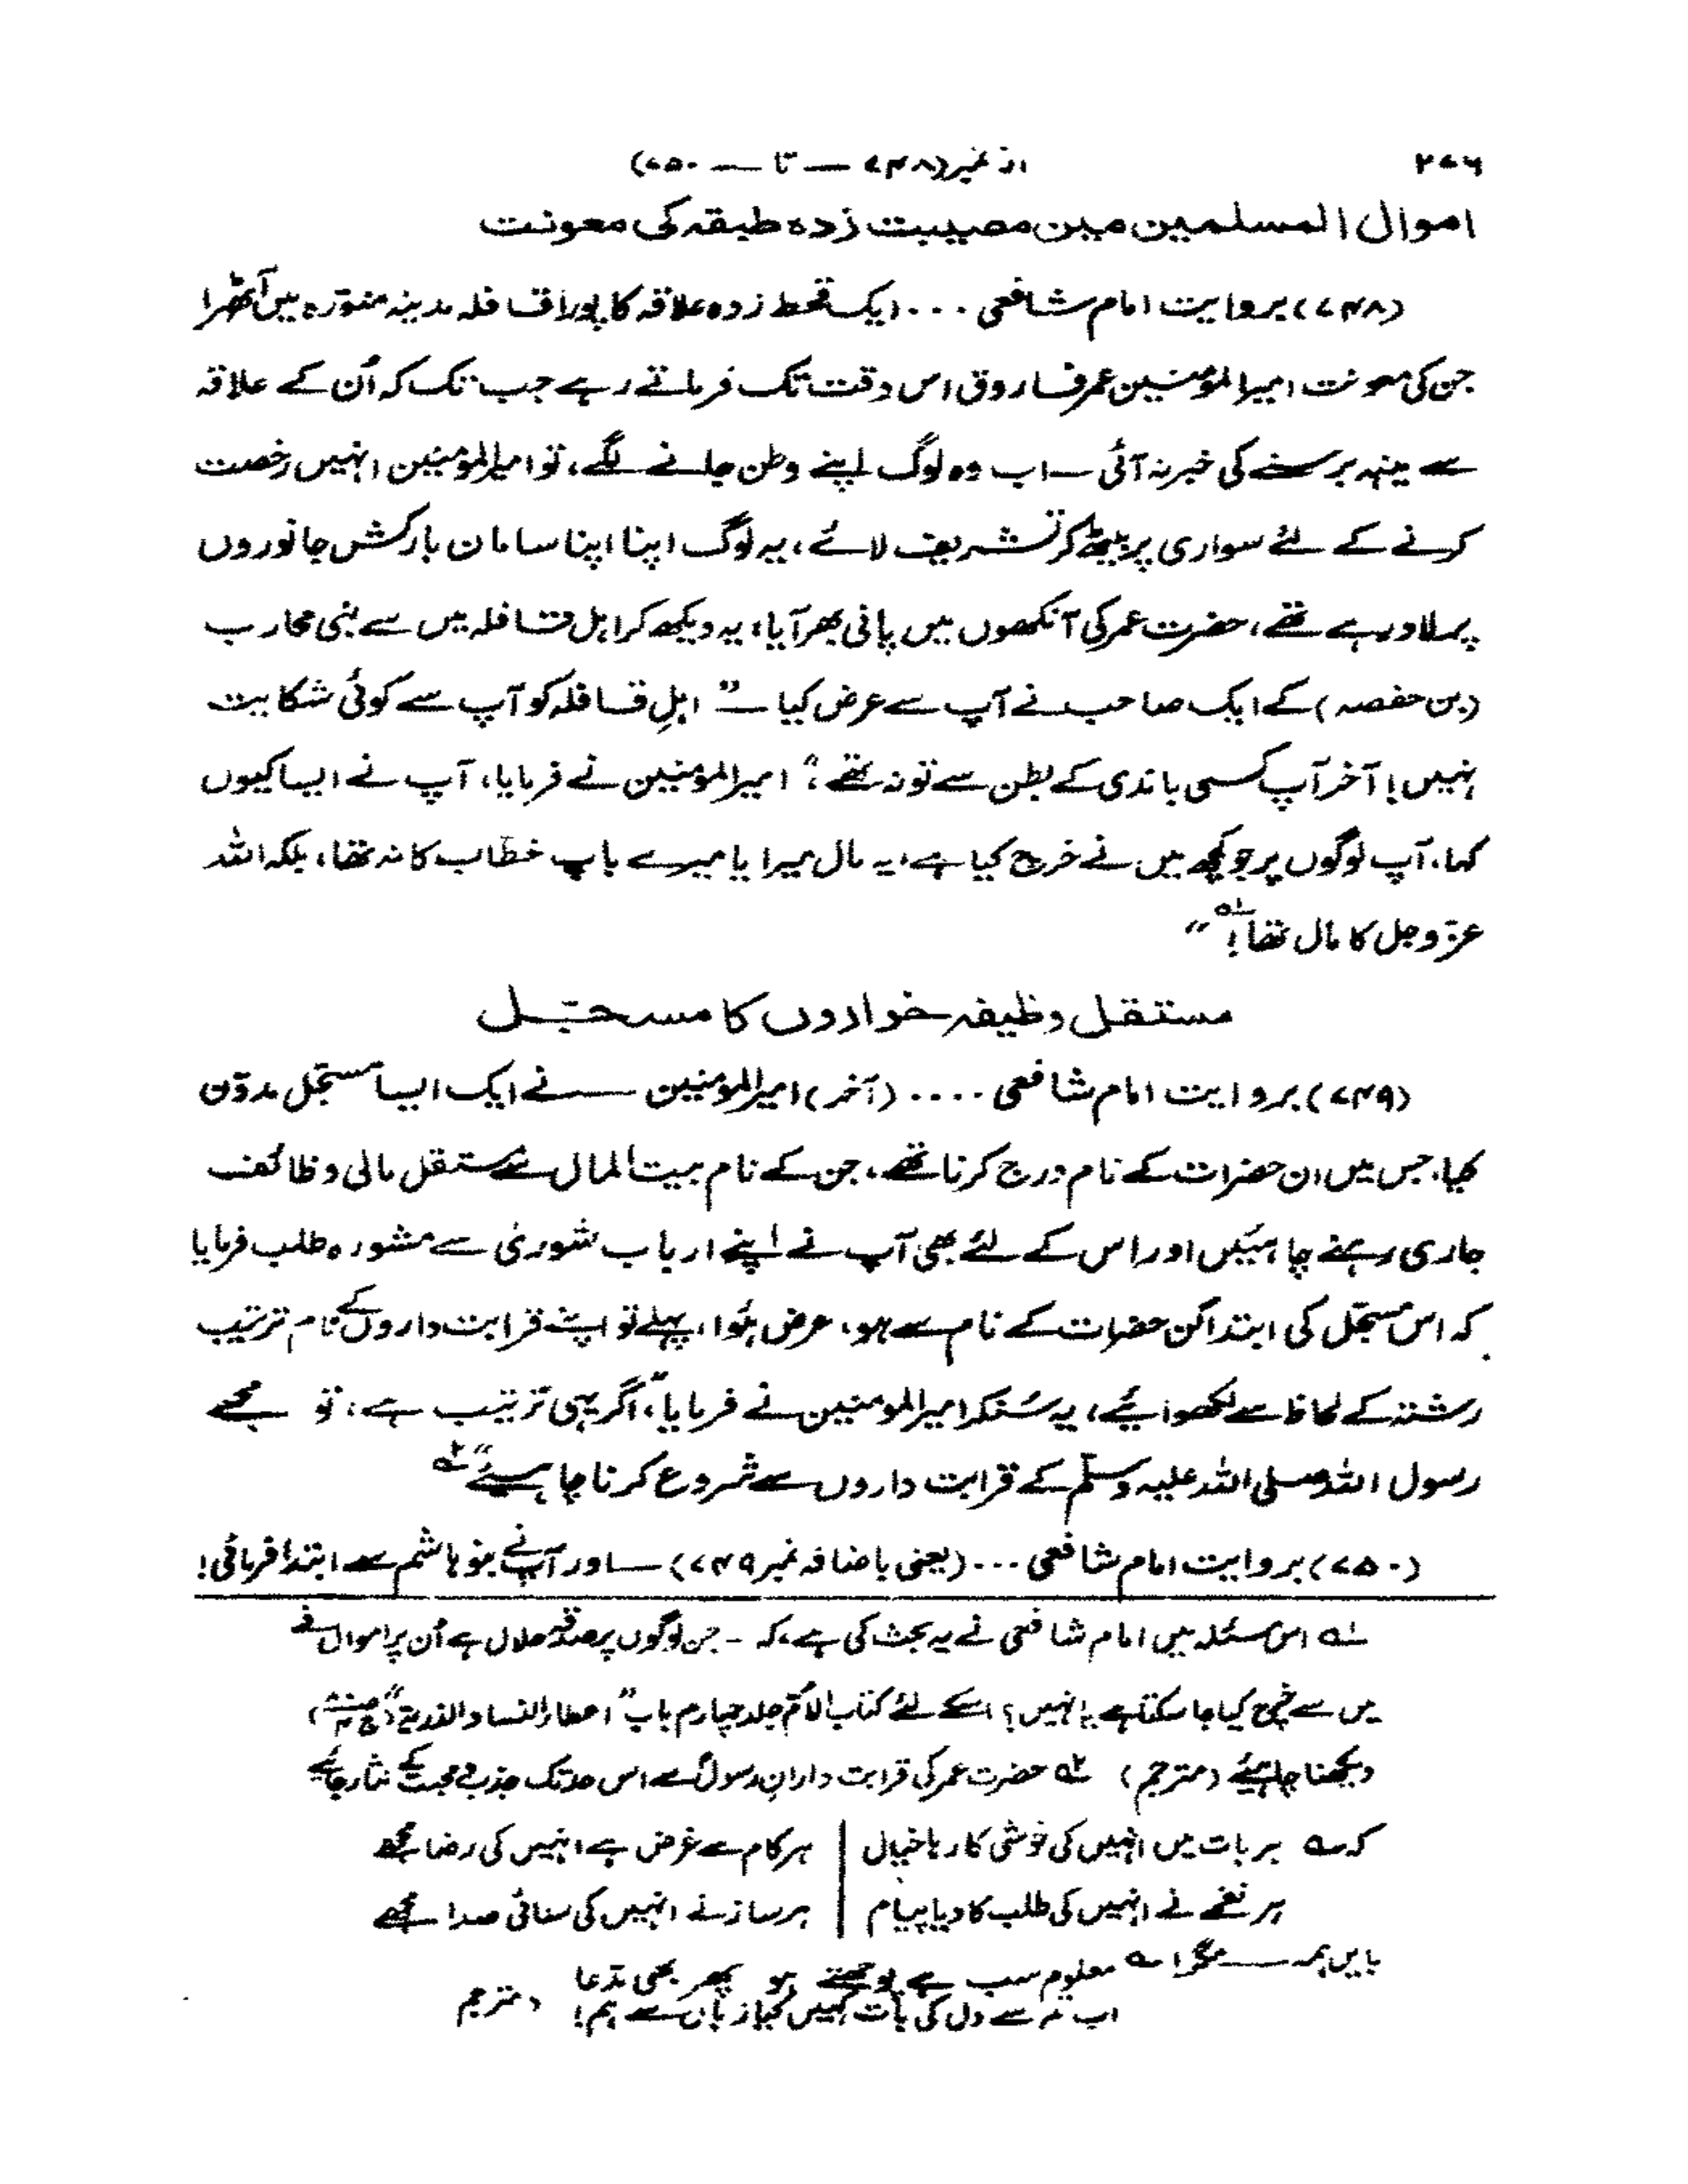 ۲۷۶ از نمبر (۷۴۸ — تا — ۷۵۰)
اموال المسلمین میں مصیبت زدہ طبقہ کی معونت
(۷۴۸) بروایت امام شافعی ... ایک قحط زدہ علاقہ کا پورا قافلہ مدینہ منورہ میں آٹھرا
جن کی معونت امیر المؤمنین عمر فاروق اس وقت تک فرماتے رہے جب تک کہ اُن کے علاقہ
سے مینہہ برسنے کی خبر نہ آئی — اب وہ لوگ اپنے وطن جانے لگے، تو امیر المؤمنین انہیں رخصت
کرنے کے لئے سواری پر بیٹھ کر تشریف لائے، یہ لوگ اپنا اپنا سامان بارکش جانوروں
پر لاد رہے تھے، حضرت عمر کی آنکھوں میں پانی بھر آیا، یہ دیکھ کر اہل قافلہ میں سے بنی محارب
(بن حفصہ) کے ایک صاحب نے آپ سے عرض کیا — ” اہلِ قافلہ کو آپ سے کوئی شکایت
نہیں! آخر آپ کسی باندی کے بطن سے تو نہ تھے؟“ امیر المؤمنین نے فرمایا، آپ نے ایسا کیوں
کہا، آپ لوگوں پر جو کچھ میں نے خرچ کیا ہے، یہ مال میرا یا میرے باپ خطّاب کا نہ تھا، بلکہ اللہ
عزّوجل کا مال تھا! ۱؎ “
مستقل وظیفہ خواروں کا مسجّل
(۷۴۹) بروایت امام شافعی .... (آخر) امیر المؤمنین — نے ایک ایسا مسجّل مدوّن
کیا، جس میں ان حضرات کے نام درج کرنا تھے، جن کے نام بیت المال سے مستقل مالی وظائف
جاری رہنے چاہئیں اور اس کے لئے بھی آپ نے اپنے ارباب شوریٰ سے مشورہ طلب فرمایا
کہ اس مسجّل کی ابتدا کن حضرات کے نام سے ہو، عرض ہُوا، پہلے تو اپنے قرابت داروں کے نام ترتیب
رشتہ کے لحاظ سے لکھوائیے، یہ سُنکر امیر المومنین نے فرمایا، ”اگر یہی ترتیب ہے، تو مجھے
رسول اللہ صلی اللہ علیہ وسلّم کے قرابت داروں سے شروع کرنا چاہیئے“ ۲؎
(۷۵۰) بروایت امام شافعی ... (یعنی باضافہ نمبر ۷۴۹) — اور آپ نے بنو ہاشم سے ابتدا فرمائی!
۱؎ اس مسئلہ میں امام شافعی نے یہ بحث کی ہے، کہ - جن لوگوں پر صدقہ حلال ہے اُن پر اموال فے
میں سے خرچ کیا جا سکتا ہے یا نہیں؟ اسکے لئے کتاب الاُمّ جلد چہارم باب ” اعطاء النساء والذریۃ“ (
دیکھنا چاہیئے (مترجم) ۲؎ حضرت عمر کی قرابت دارانِ رسولؐ سے اس حد تک جذبۂ محبت کے نثار جائیے
کہ ؎ ہر بات میں انہیں کی خوشی کا رہا خیال | ہر کام سے غرض ہے انہیں کی رضا مجھے
ہر نغمے نے انہیں کی طلب کا دیا پیام | ہر ساز نے انہیں کی سنائی صدا مجھے
بایں ہمہ — مگر! ؎ معلوم سب ہے پوچھتے ہو پھر بھی مدّعا
اب تم سے دل کی بات کہیں کیا زباں سے ہم! (مترجم